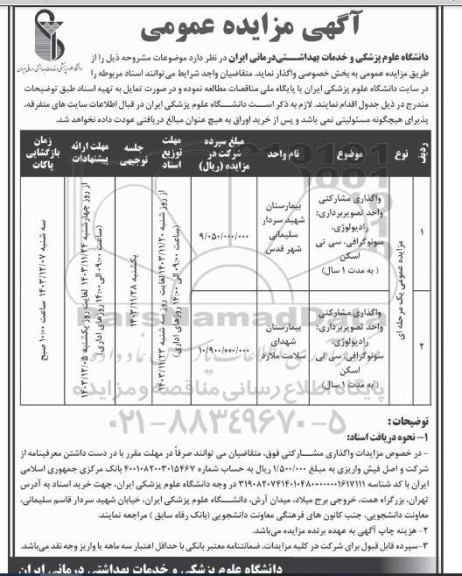 آگهی مزایده عمومی
دانشگاه علوم پزشکی و خدمات بهداشتی درمانی ایران
دانشگاه علوم پزشکی و خدمات بهداشــتی‌درمانی ایران در نظر دارد موضوعات مشروحه ذیل را از
طریق مزایده عمومی به بخش خصوصی واگذار نماید. متقاضیان واجد شرایط می‌توانند اسناد مربوطه را
در سایت دانشگاه علوم پزشکی ایران یا پایگاه ملی مناقصات مطالعه نموده و در صورت تمایل به تهیه اسناد طبق توضیحات
مندرج در ذیل جدول اقدام نمایند. لازم به ذکر اســت دانشــگاه علوم پزشکی ایران در قبال اطلاعات سایت های متفرقه،
پذیرای هیچگونه مسئولیتی نمی باشد و پس از خرید اوراق به هیچ عنوان مبالغ دریافتی عودت داده نخواهد شد.
ردیف
نوع
موضوع
نام واحد
مبلغ سپرده شرکت در مزایده (ریال)
مهلت توزیع اسناد
جلسه توجیهی
مهلت ارائه پیشنهادات
زمان بازگشایی پاکات
۱
مزایده عمومی یک مرحله ای
واگذاری مشارکتی
واحد تصویربرداری:
رادیولوژی،
سونوگرافی، سی تی
اسکن
( به مدت ۱ سال)
بیمارستان
شهید سردار
سلیمانی
شهر قدس
۹/۰۵۰/۰۰۰/۰۰۰
از روز شنبه ۱۴۰۳/۱۱/۲۰ لغایت روز سه شنبه ۱۴۰۳/۱۱/۲۳
(ساعت ۰۹:۰۰ الی ۱۴:۰۰ روزهای اداری)
یکشنبه ۱۴۰۳/۱۱/۲۸
از روز چهارشنبه ۱۴۰۳/۱۱/۲۴ لغایت روز یکشنبه ۱۴۰۳/۱۲/۰۵
(ساعت ۰۹:۰۰ الی ۱۴:۰۰ روزهای اداری)
سه شنبه ۱۴۰۳/۱۲/۰۷ ساعت ۱۰:۰۰ صبح
۲
واگذاری مشارکتی
واحد تصویربرداری:
رادیولوژی،
سونوگرافی، سی تی
اسکن
(به مدت ۱ سال)
بیمارستان
شهدای
سلامت ملارد
۱۰/۹۰۰/۰۰۰/۰۰۰
ParsNamadData
پایگاه اطلاع رسانی مناقصه و مزایده
۰۲۱-۸۸۳۴۹۶۷۰-۵
توضیحات :
۱- نحوه دریافت اسناد:
- در خصوص مزایدات واگذاری مشــارکتی فوق، متقاضیان می توانند صرفاً در مهلت مقرر با در دست داشتن معرفینامه از
شرکت و اصل فیش واریزی به مبلغ ۱/۵۰۰/۰۰۰ ریال به حساب شماره ۴۰۰۱۰۸۲۰۰۳۰۱۵۴۶۷ بانک مرکزی جمهوری اسلامی
ایران با کد شناسه در وجه دانشگاه علوم پزشکی ایران، جهت خرید اسناد به آدرس
تهران، بزرگراه همت، خروجی برج میلاد، میدان آرش، دانشــگاه علوم پزشکی ایران، خیابان شهید سردار قاسم سلیمانی،
معاونت دانشجویی، جنب کانون های فرهنگی معاونت دانشجویی (بانک رفاه سابق ) مراجعه نمایند.
۲- هزینه چاپ آگهی به عهده برنده مزایده می‌باشد.
۳-سپرده قابل قبول برای شرکت در کلیه مزایدات، ضمانتنامه معتبر بانکی با حداقل اعتبار سه ماهه یا واریز وجه نقد می‌باشد.
دانشگاه علوم پزشکی و خدمات بهداشتی درمانی ایران